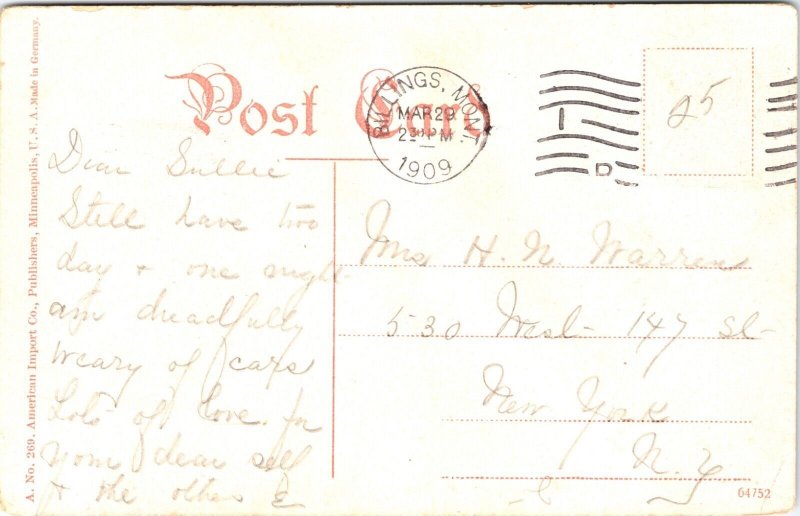 Post Card
BILLINGS, MONT.
MAR 29
2 30 PM
1909
25
Dear Sallie
Still have two
day & one night
am dreadfully
weary of cars
Lots of love for
your dear self
& the other E
Mrs H. N. Warren
530 West 147 St
New York
N.Y
A. No. 269. American Import Co., Publishers, Minneapolis, U. S. A. Made in Germany.
64752